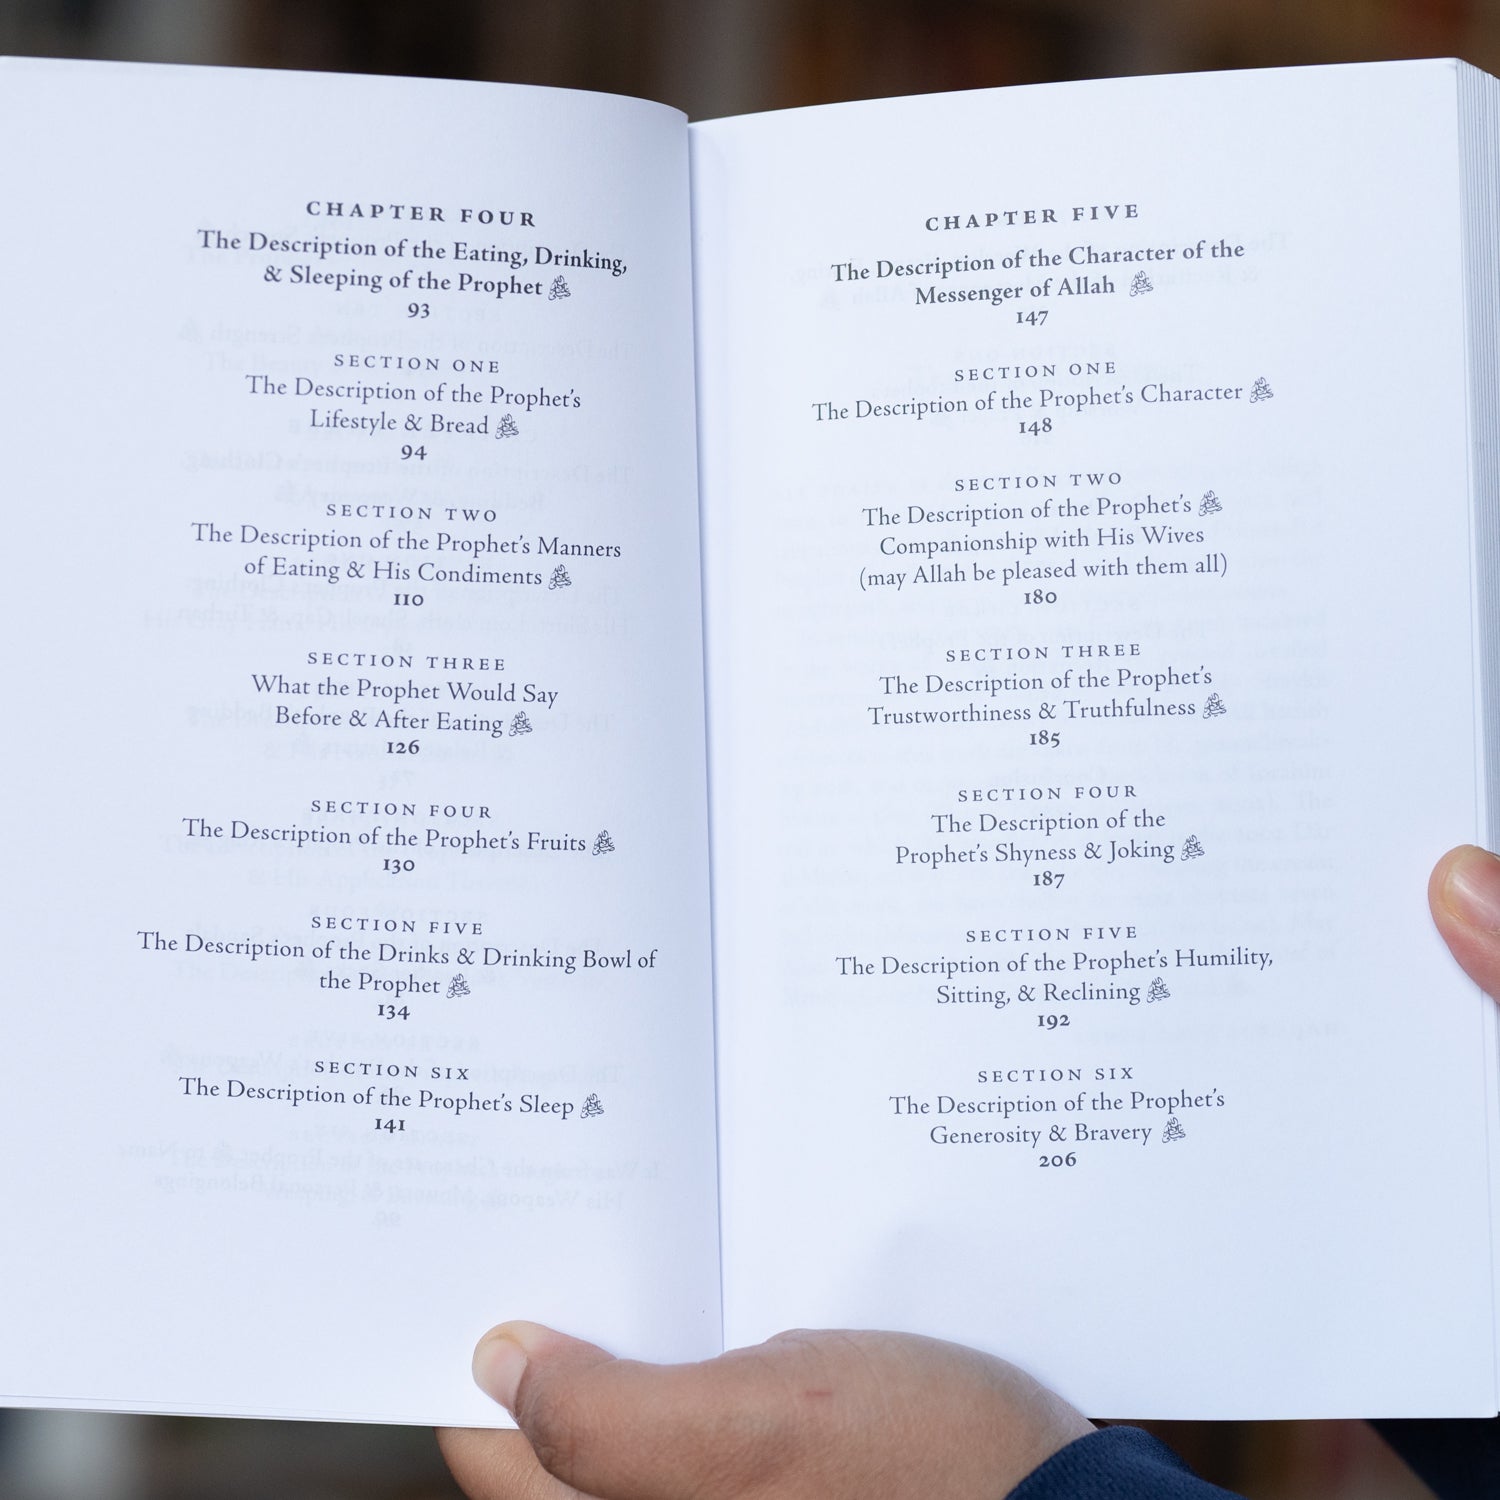 CHAPTER FOUR
The Description of the Eating, Drinking,
& Sleeping of the Prophet ﷺ
93
SECTION ONE
The Description of the Prophet's
Lifestyle & Bread ﷺ
94
SECTION TWO
The Description of the Prophet's Manners
of Eating & His Condiments ﷺ
110
SECTION THREE
What the Prophet Would Say
Before & After Eating ﷺ
126
SECTION FOUR
The Description of the Prophet's Fruits ﷺ
130
SECTION FIVE
The Description of the Drinks & Drinking Bowl of
the Prophet ﷺ
134
SECTION SIX
The Description of the Prophet's Sleep ﷺ
141
CHAPTER FIVE
The Description of the Character of the
Messenger of Allah ﷺ
147
SECTION ONE
The Description of the Prophet's Character ﷺ
148
SECTION TWO
The Description of the Prophet's ﷺ
Companionship with His Wives
(may Allah be pleased with them all)
180
SECTION THREE
The Description of the Prophet's
Trustworthiness & Truthfulness ﷺ
185
SECTION FOUR
The Description of the
Prophet's Shyness & Joking ﷺ
187
SECTION FIVE
The Description of the Prophet's Humility,
Sitting, & Reclining ﷺ
192
SECTION SIX
The Description of the Prophet's
Generosity & Bravery ﷺ
206